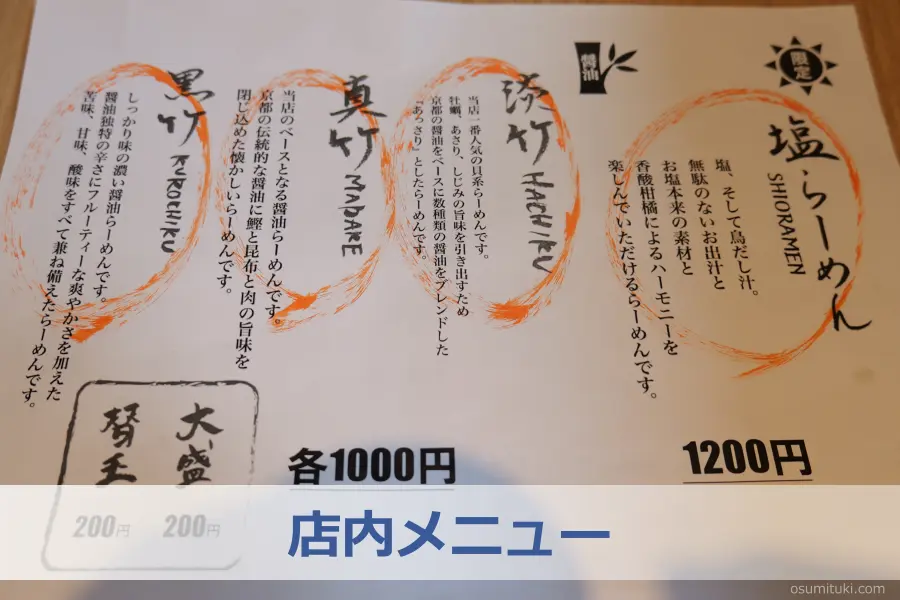 限定
塩らーめん
SHIORAMEN
塩、そして鳥だし汁。
無駄のないお出汁と
お塩本来の素材と
香酸柑橘によるハーモニーを
楽しんでいただけるらーめんです。
1200円
醤油
淡竹
HACHIKU
当店一番人気の貝系らーめんです。
牡蠣、あさり、しじみの旨味を引き出すため
京都の醤油をベースに数種類の醤油をブレンドした
『あっさり』としたらーめんです。
真竹
MADAKE
当店のベースとなる醤油らーめんです。
京都の伝統的な醤油に鰹と昆布と肉の旨味を
閉じ込めた懐かしいらーめんです。
黒竹
KUROCHIKU
しっかり味の濃い醤油らーめんです。
醤油独特の辛さにフルーティーな爽やかさを加えた
苦味、甘味、酸味をすべて兼ね備えたらーめんです。
各1000円
大盛
200円
替玉
200円
店内メニュー
osumituki.com